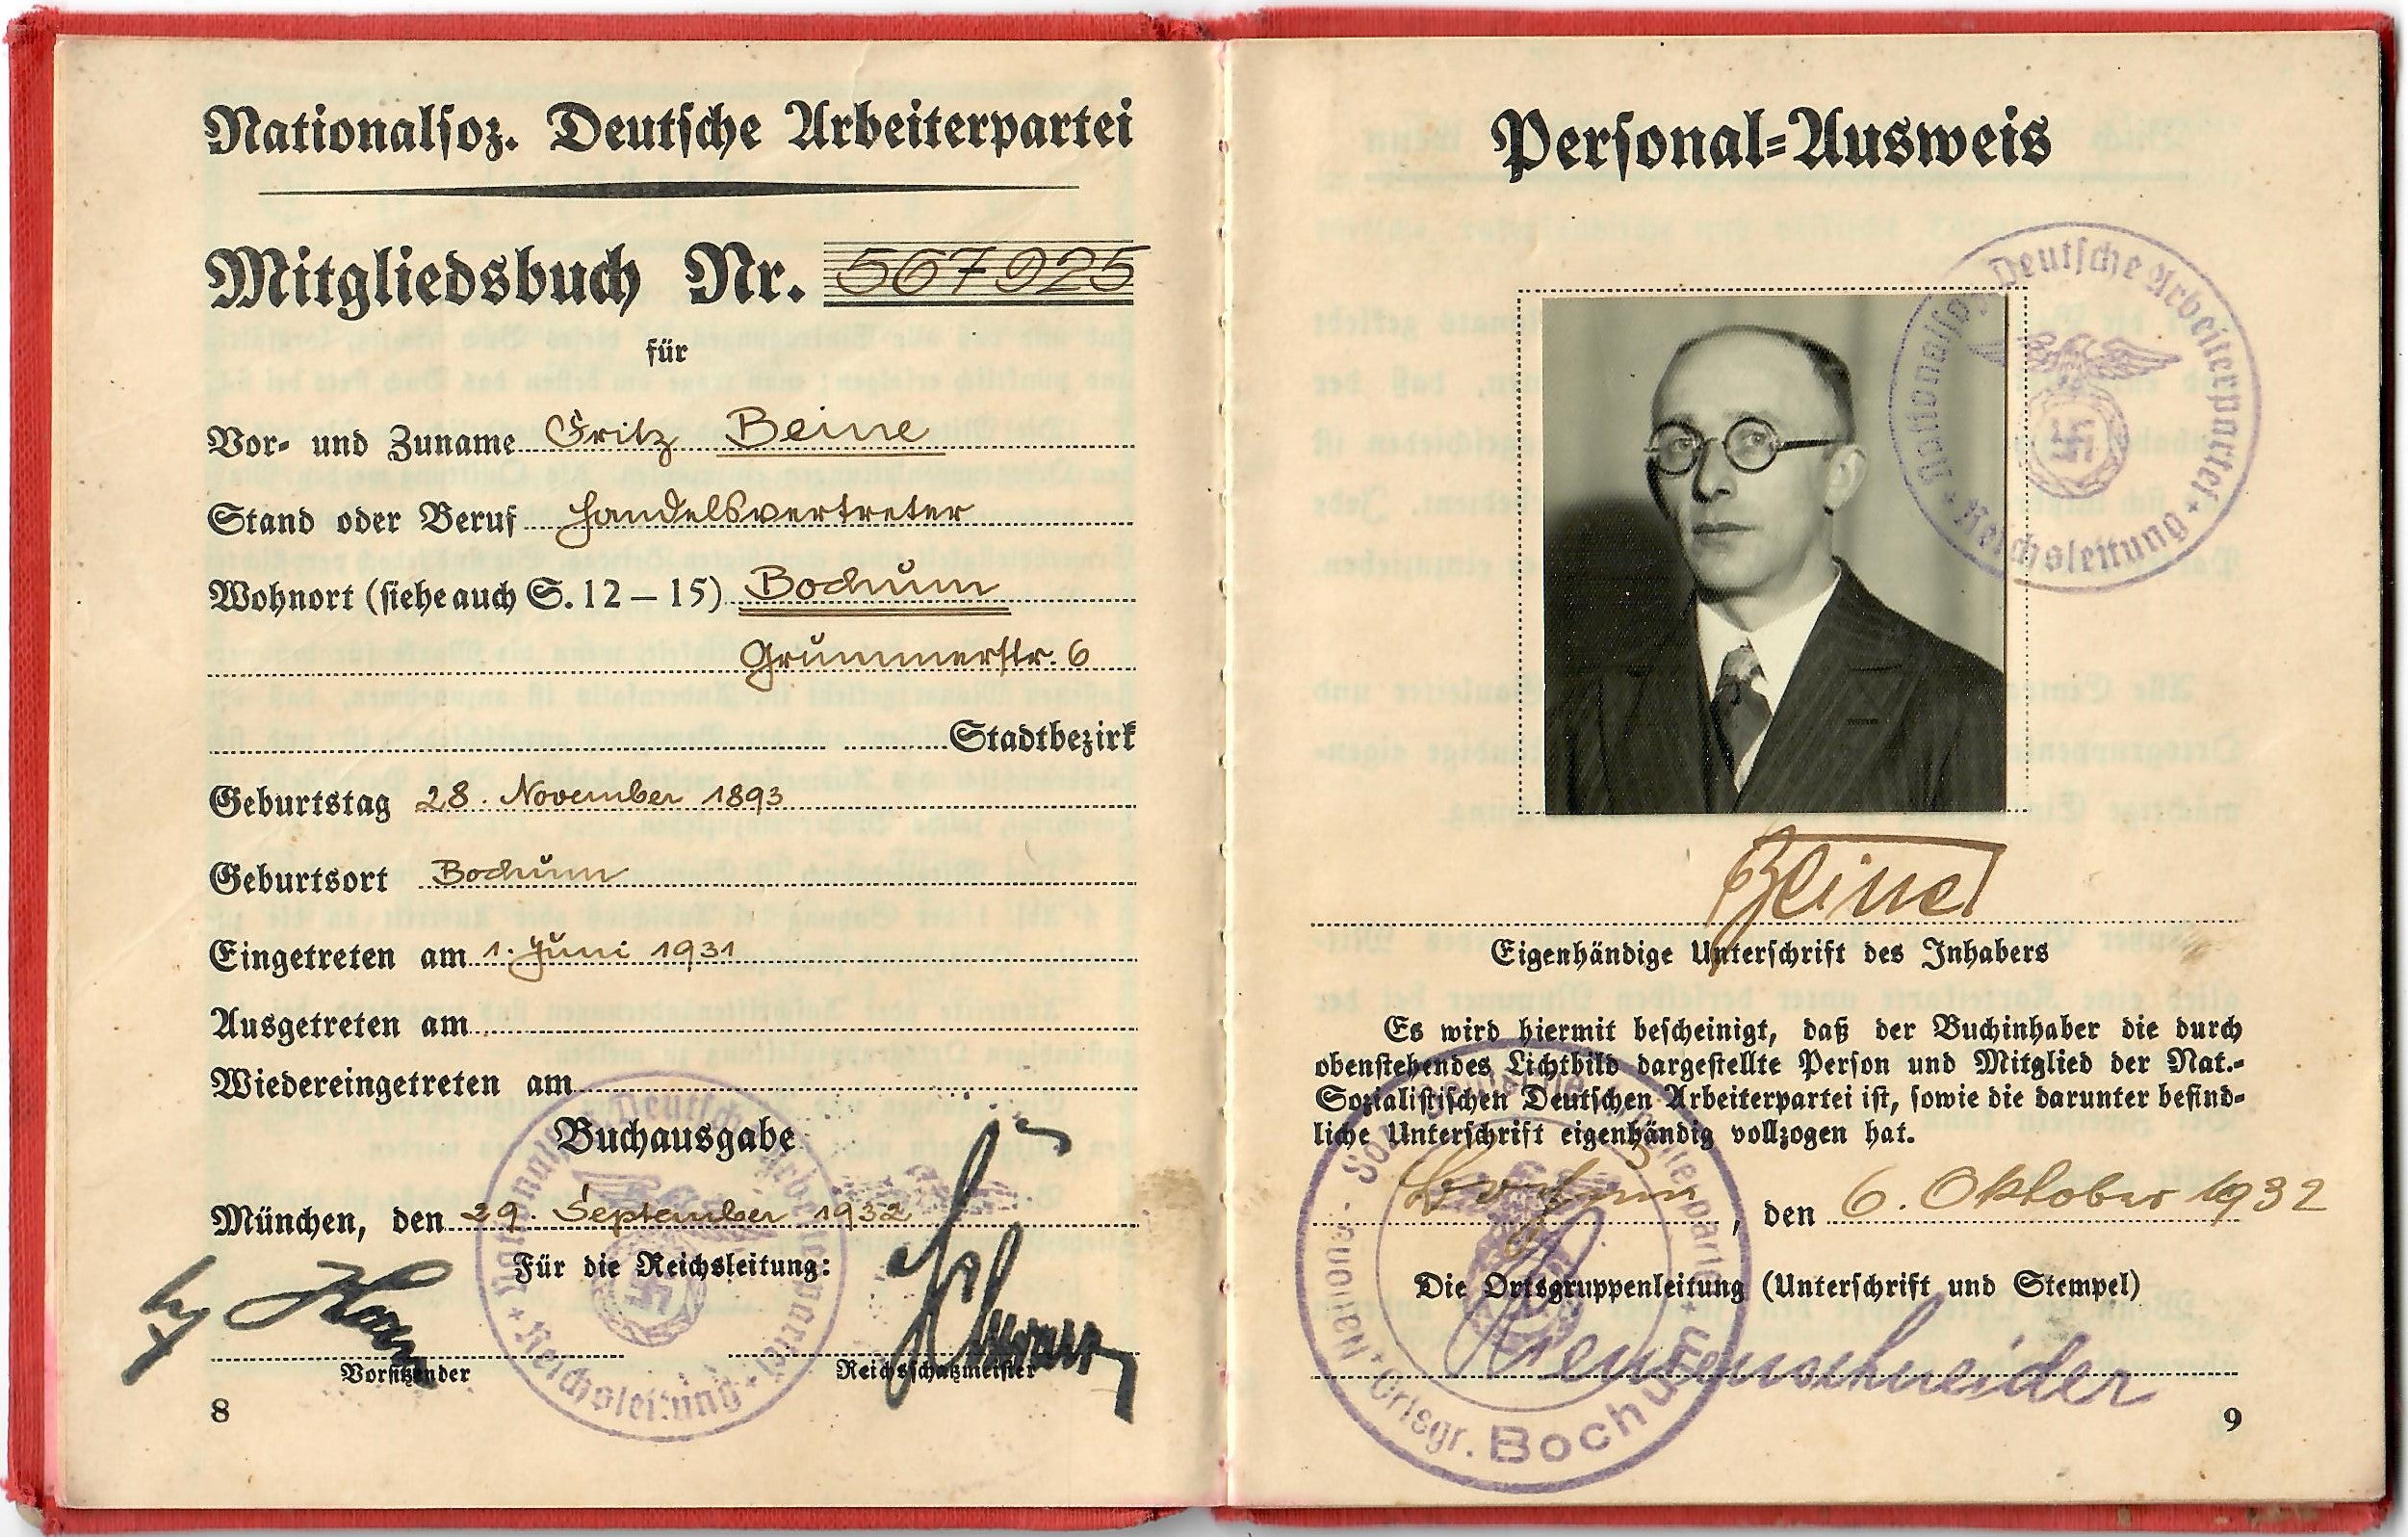 Nationalsoz. Deutsche Arbeiterpartei
Mitgliedsbuch Nr. 567925
für
Vor- und Zuname Fritz Beine
Stand oder Beruf Handelsvertreter
Wohnort (siehe auch S. 12 – 15) Bochum
Grummerstr. 6
Stadtbezirk
Geburtstag 28. November 1893
Geburtsort Bochum
Eingetreten am 1. Juni 1931
Ausgetreten am
Wiedereingetreten am
Buchausgabe
München, den 29. September 1932
Für die Reichsleitung:
Vorsitzender
Reichsschatzmeister
Nationalsoz. Deutsche Arbeiterpartei
Reichsleitung
8
Personal-Ausweis
Nationalsoz. Deutsche Arbeiterpartei
Reichsleitung
Beine
Eigenhändige Unterschrift des Inhabers
Es wird hiermit bescheinigt, daß der Buchinhaber die durch
obenstehendes Lichtbild dargestellte Person und Mitglied der Nat.-
Sozialistischen Deutschen Arbeiterpartei ist, sowie die darunter befind-
liche Unterschrift eigenhändig vollzogen hat.
Bochum, den 6. Oktober 1932
Die Ortsgruppenleitung (Unterschrift und Stempel)
Ortsgr. Bochum
9